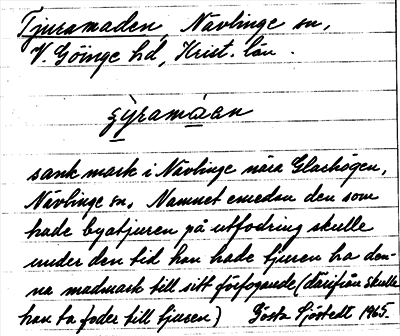 Tjuramaden, Nävlinge sn,
V. Göinge hd, Krist. län.
sýramàan
sank mark i Nävlinge nära Glashögen,
Nävlinge sn. Namnet emedan den som
hade byatjuren på utfodring skulle
under den tid han hade tjuren ha den-
na madmark till sitt förfogande (därifrån skulle
han ta foder till tjuren) Gösta Sjöstedt 1965.